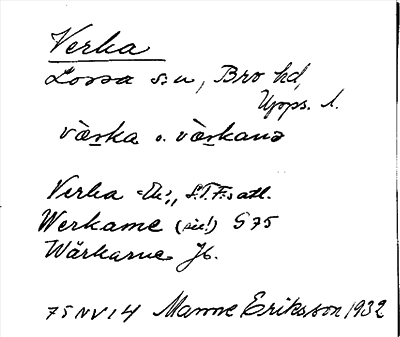 Verka
Lossa sn, Bro hd,
Upps. l.
värka o. värkanə
Verka Ek., S.T.F:s atl.
Werkame (sic!) G 75
Wärkarne Jb.
75 NV 14 Manne Eriksson 1932